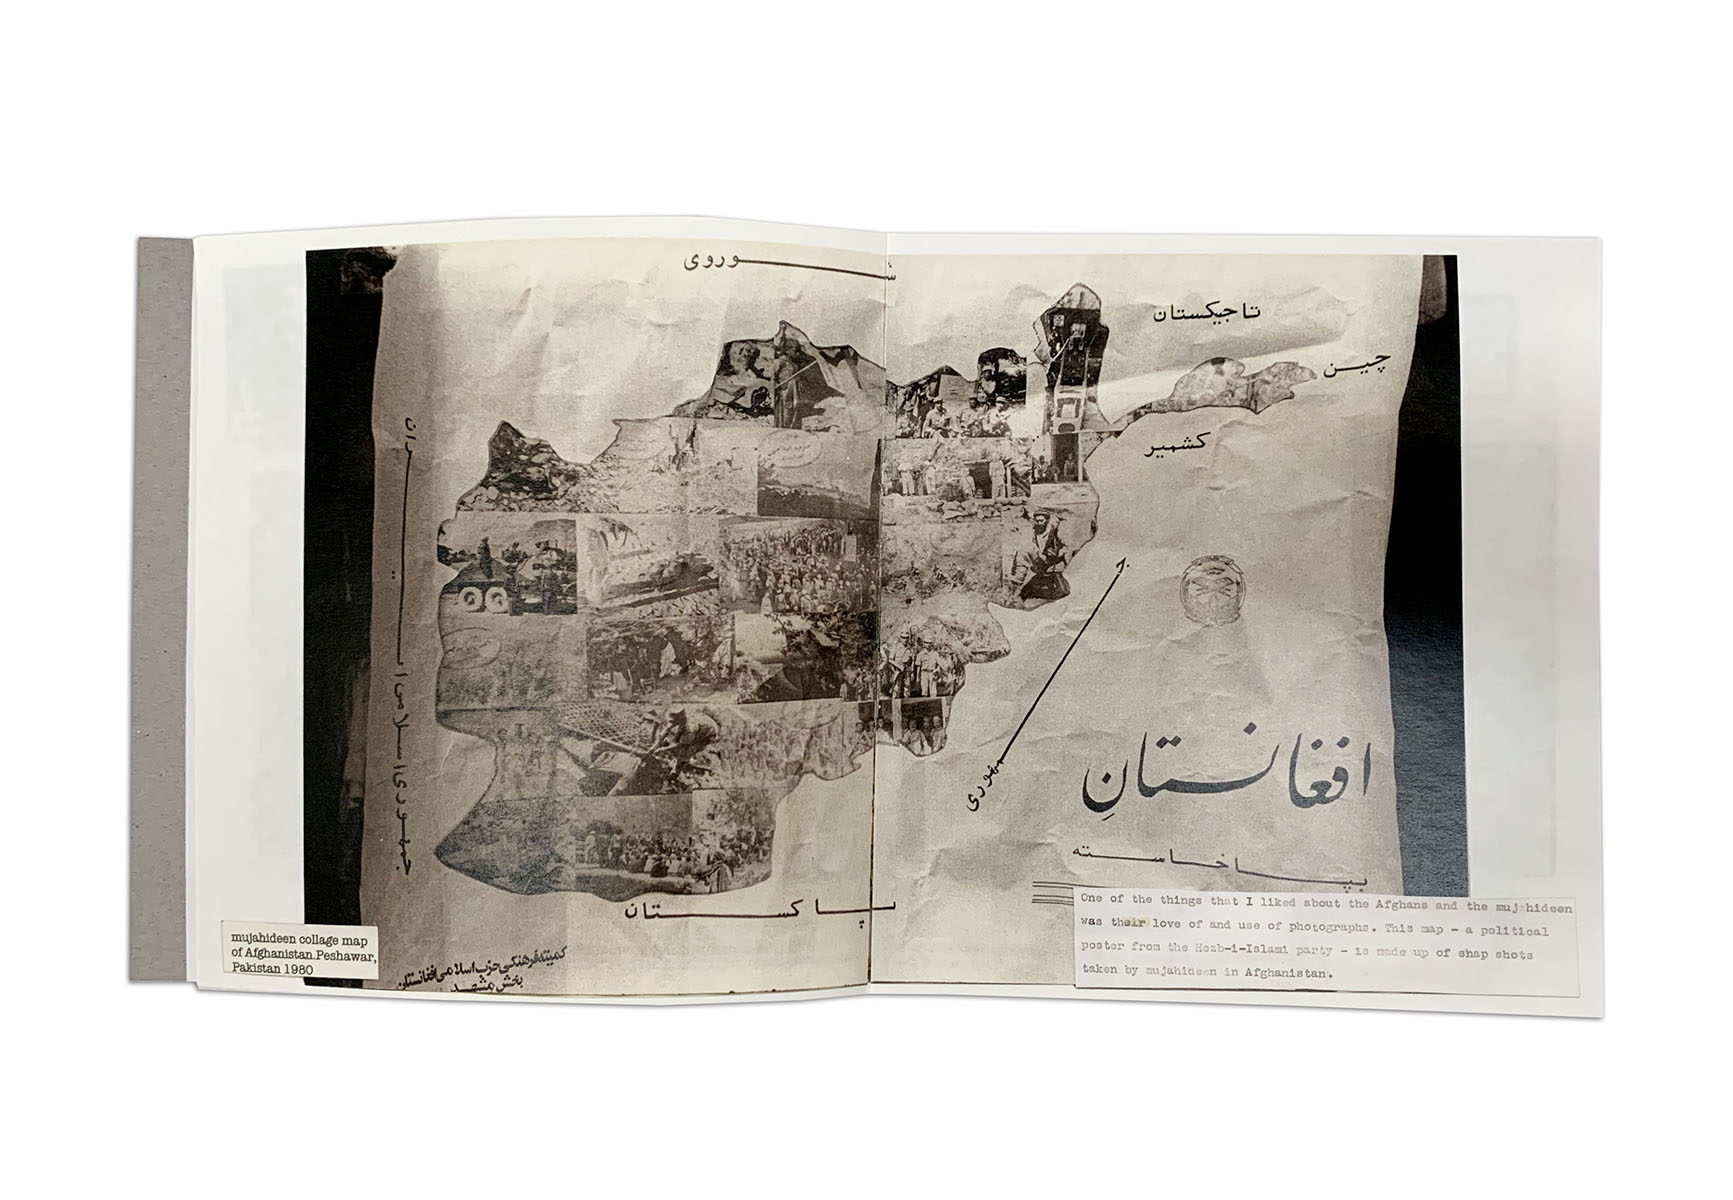 شوروی
تاجیکستان
چین
کشمیر
جمهوری اسلامی ایران
جمهوری
افغانستانِ
بپاخاسته
پاکستان
کمیته فرهنگی حزب اسلامی افغانستان
بخش مشهد
mujahideen collage map
of Afghanistan.Peshawar,
Pakistan 1980
One of the things that I liked about the Afghans and the mujahideen
was their love of and use of photographs. This map - a political
poster from the Hezb-i-Islami party - is made up of shap shots
taken by mujahideen in Afghanistan.